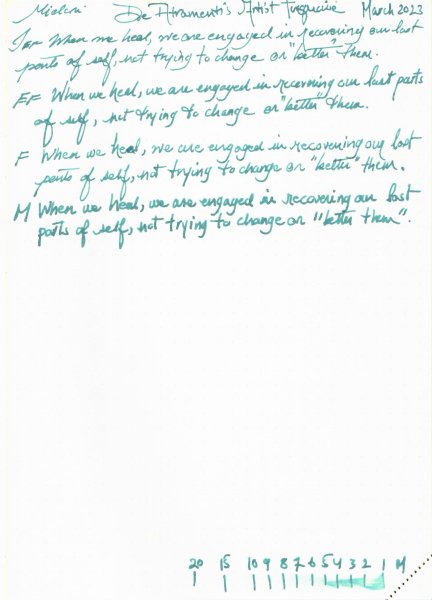 Midori: De Atramentis Artist Turquoise March 2023
When we heal, we are engaged in recovering our lost
parts of self, not trying to change or "better" them.
EF When we heal, we are engaged in recovering our lost parts
of self, not trying to change or "better" them.
F When we heal, we are engaged in recovering our lost
parts of self, not trying to change or "better" them.
M When we heal, we are engaged in recovering our lost
parts of self, not trying to change or "better them".
20 15 10 9 8 7 6 5 4 3 2 1 M